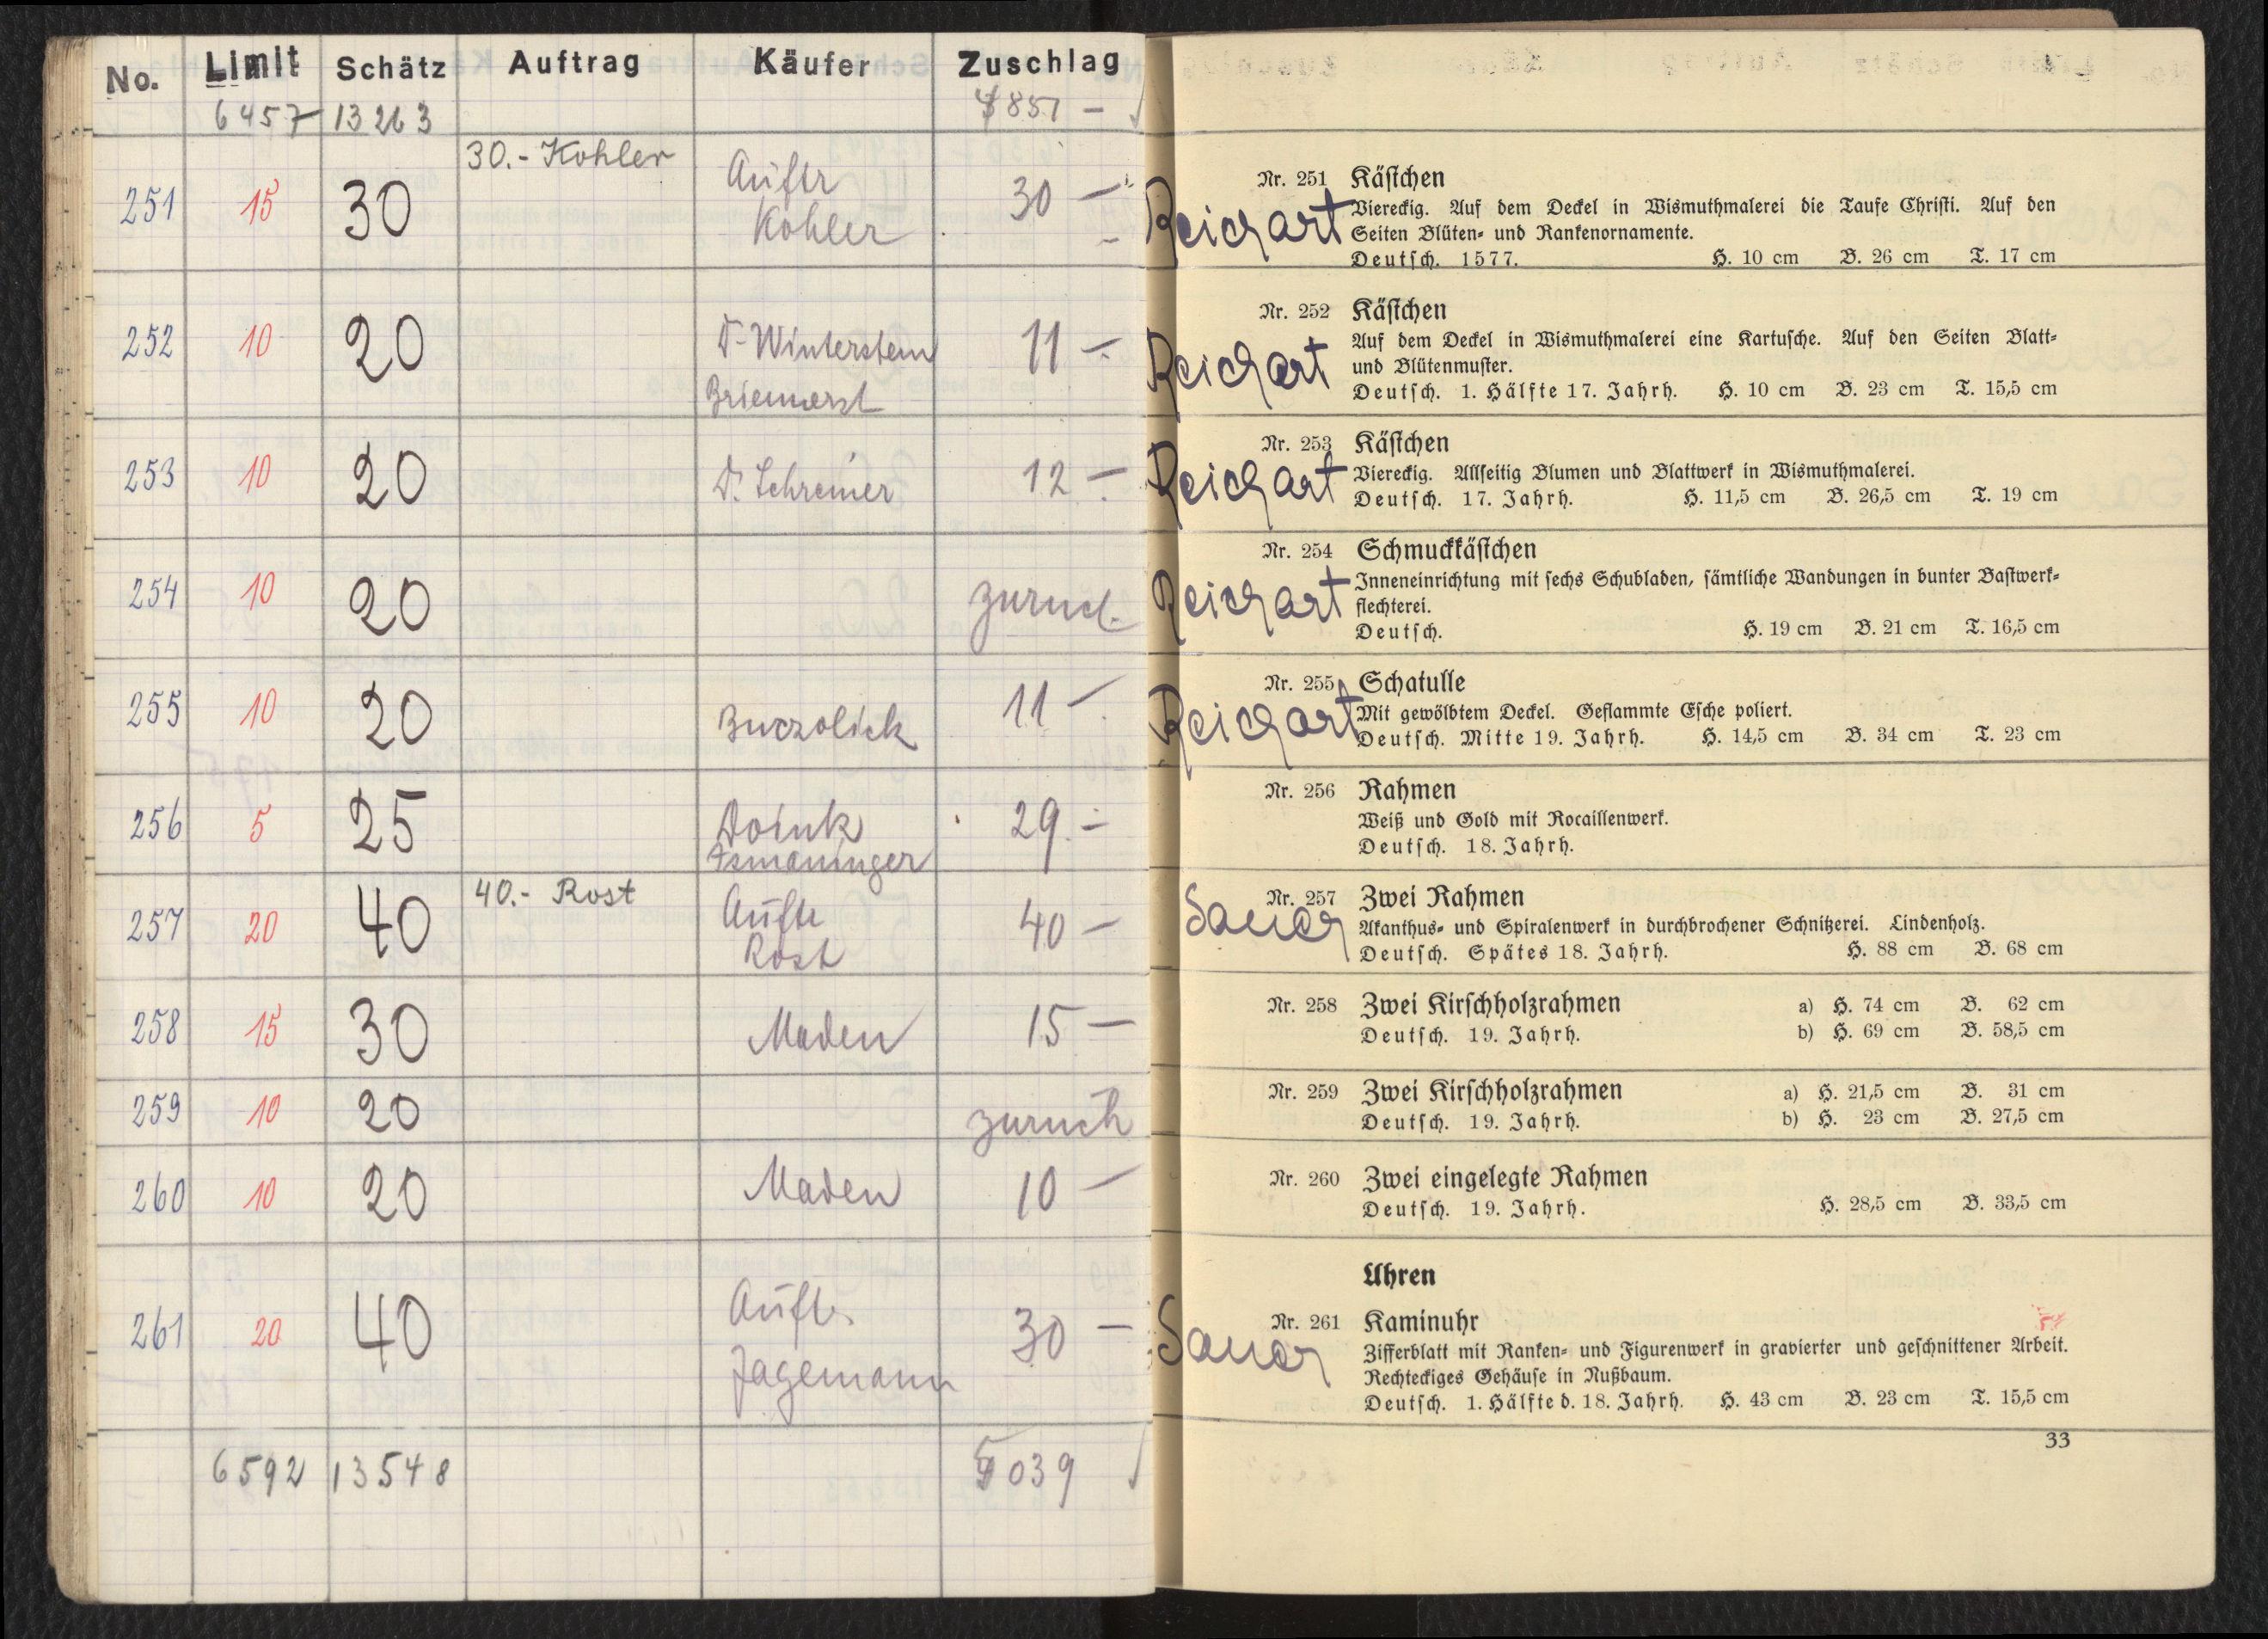 No. Limit Schätz Auftrag Käufer Zuschlag
6457 13263 4851 –
30.- Kohler
251 15 30 Auftr 30 –
Kohler
252 10 20 Dr Winterstein 11 –
253 10 20 Dr. Schreiner 12 –
254 10 20 zurück
255 10 20 11 –
256 5 25 29.–
Ismaninger
40.- Rost
257 20 40 Auftr 40 –
Rost
258 15 30 Maden 15 –
259 10 20 zurück
260 10 20 Maden 10 –
261 20 40 Auftr. 30 –
Jagemann
6592 13548 5039
Nr. 251 Kästchen
Reichart Viereckig. Auf dem Deckel in Wismuthmalerei die Taufe Christi. Auf den
Seiten Blüten- und Rankenornamente.
Deutsch. 1577. H. 10 cm B. 26 cm T. 17 cm
Nr. 252 Kästchen
Reichart Auf dem Deckel in Wismuthmalerei eine Kartusche. Auf den Seiten Blatt-
und Blütenmuster.
Deutsch. 1. Hälfte 17. Jahrh. H. 10 cm B. 23 cm T. 15,5 cm
Nr. 253 Kästchen
Reichart Viereckig. Allseitig Blumen und Blattwerk in Wismuthmalerei.
Deutsch. 17. Jahrh. H. 11,5 cm B. 26,5 cm T. 19 cm
Nr. 254 Schmuckkästchen
Reichart Inneneinrichtung mit sechs Schubladen, sämtliche Wandungen in bunter Bastwerk-
flechterei.
Deutsch. H. 19 cm B. 21 cm T. 16,5 cm
Nr. 255 Schatulle
Reichart Mit gewölbtem Deckel. Geflammte Esche poliert.
Deutsch. Mitte 19. Jahrh. H. 14,5 cm B. 34 cm T. 23 cm
Nr. 256 Rahmen
Weiß und Gold mit Rocaillenwerk.
Deutsch. 18. Jahrh.
Nr. 257 Zwei Rahmen
Sauer Akanthus- und Spiralenwerk in durchbrochener Schnitzerei. Lindenholz.
Deutsch. Spätes 18. Jahrh. H. 88 cm B. 68 cm
Nr. 258 Zwei Kirschholzrahmen a) H. 74 cm B. 62 cm
Deutsch. 19. Jahrh. b) H. 69 cm B. 58,5 cm
Nr. 259 Zwei Kirschholzrahmen a) H. 21,5 cm B. 31 cm
Deutsch. 19. Jahrh. b) H. 23 cm B. 27,5 cm
Nr. 260 Zwei eingelegte Rahmen
Deutsch. 19. Jahrh. H. 28,5 cm B. 33,5 cm
Uhren
Nr. 261 Kaminuhr
Sauer Zifferblatt mit Ranken- und Figurenwerk in gravierter und geschnittener Arbeit.
Rechteckiges Gehäuse in Nußbaum.
Deutsch. 1. Hälfte d. 18. Jahrh. H. 43 cm B. 23 cm T. 15,5 cm
33